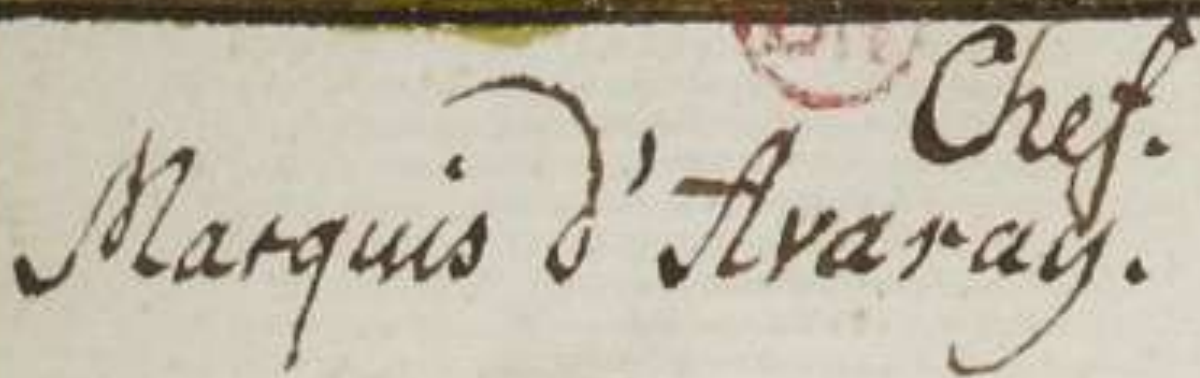 Chef.
Marquis d'Avaray.